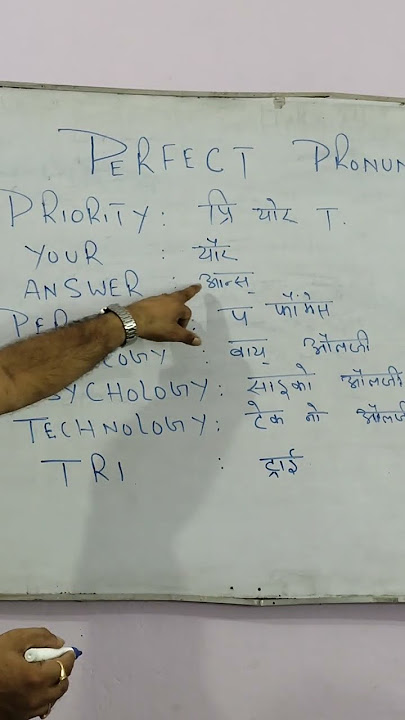 PERFECT PRONUN
PRIORITY : प्रि योर T.
YOUR : यॉर
ANSWER : ऑन्स्
PER : प फॉमेंस
OLOGY : बाय् ऑलजी
PSYCHOLOGY : साइको ऑलजी
TECHNOLOGY : टेक नो ऑलज
TRI : ट्राई